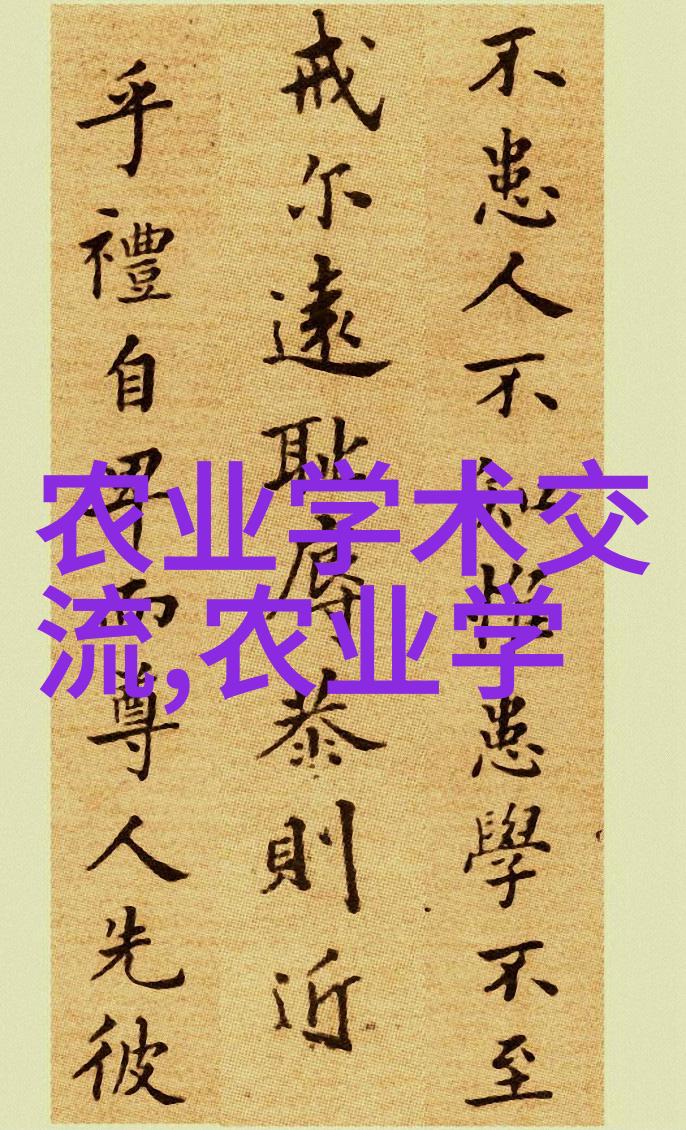 不患人不知惟患學不至
戒尔遠耻辱恭則近
乎禮自卑而尊人先彼
农业学术交
流,农业学